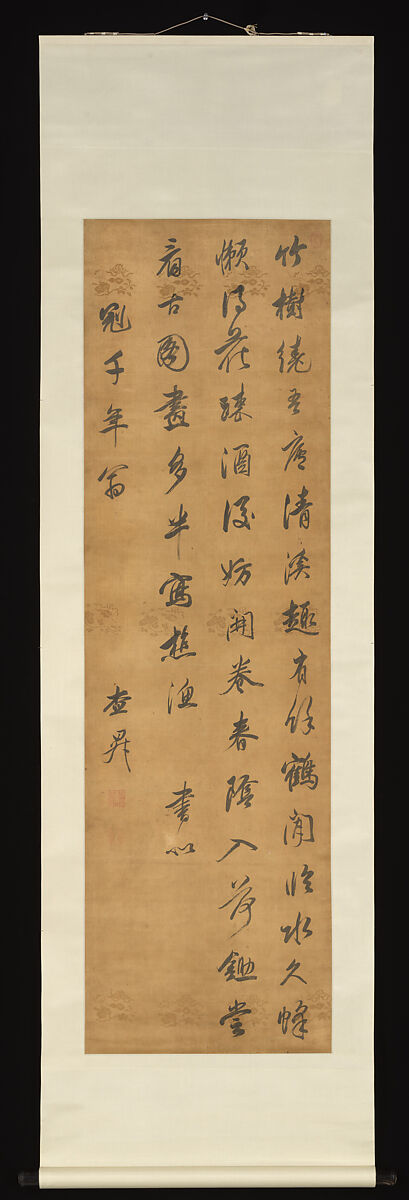 竹樹繞吾廬清深趣有餘鶴閒臨水久蜂
懶得花疎酒後妨開卷春陰入荷鋤嘗
看古圖畫多半寫樵漁 書似
千年翁 查昇